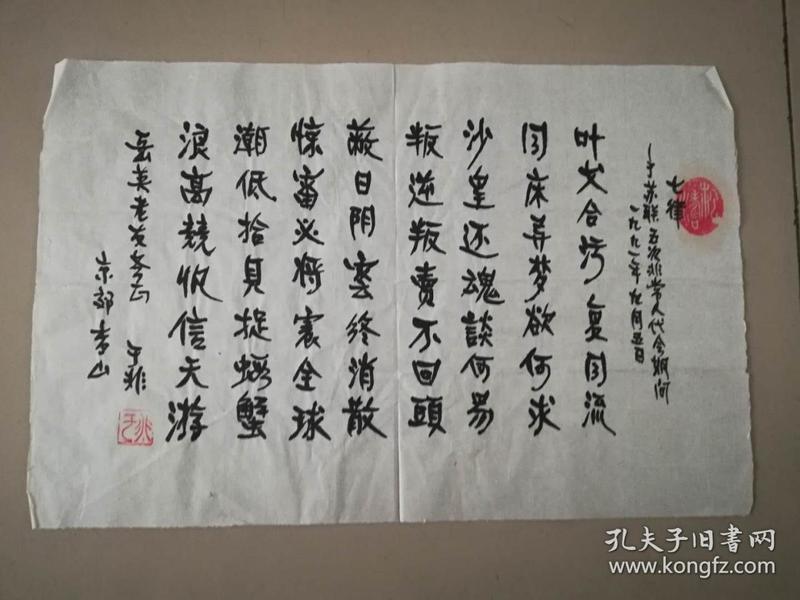 七律
—于苏联五次非常人代会期间
一九九一年九月五日
叶戈合污复同流
同床异梦欲何求
沙皇还魂談何易
叛逆叛賣不回頭
蔽日阴雲终消散
惊雷必将震全球
潮低拾貝捉螃蟹
浪高競帆信天游
岳英老友
于非
京郊香山
孔夫子旧书网
www.kongfz.com